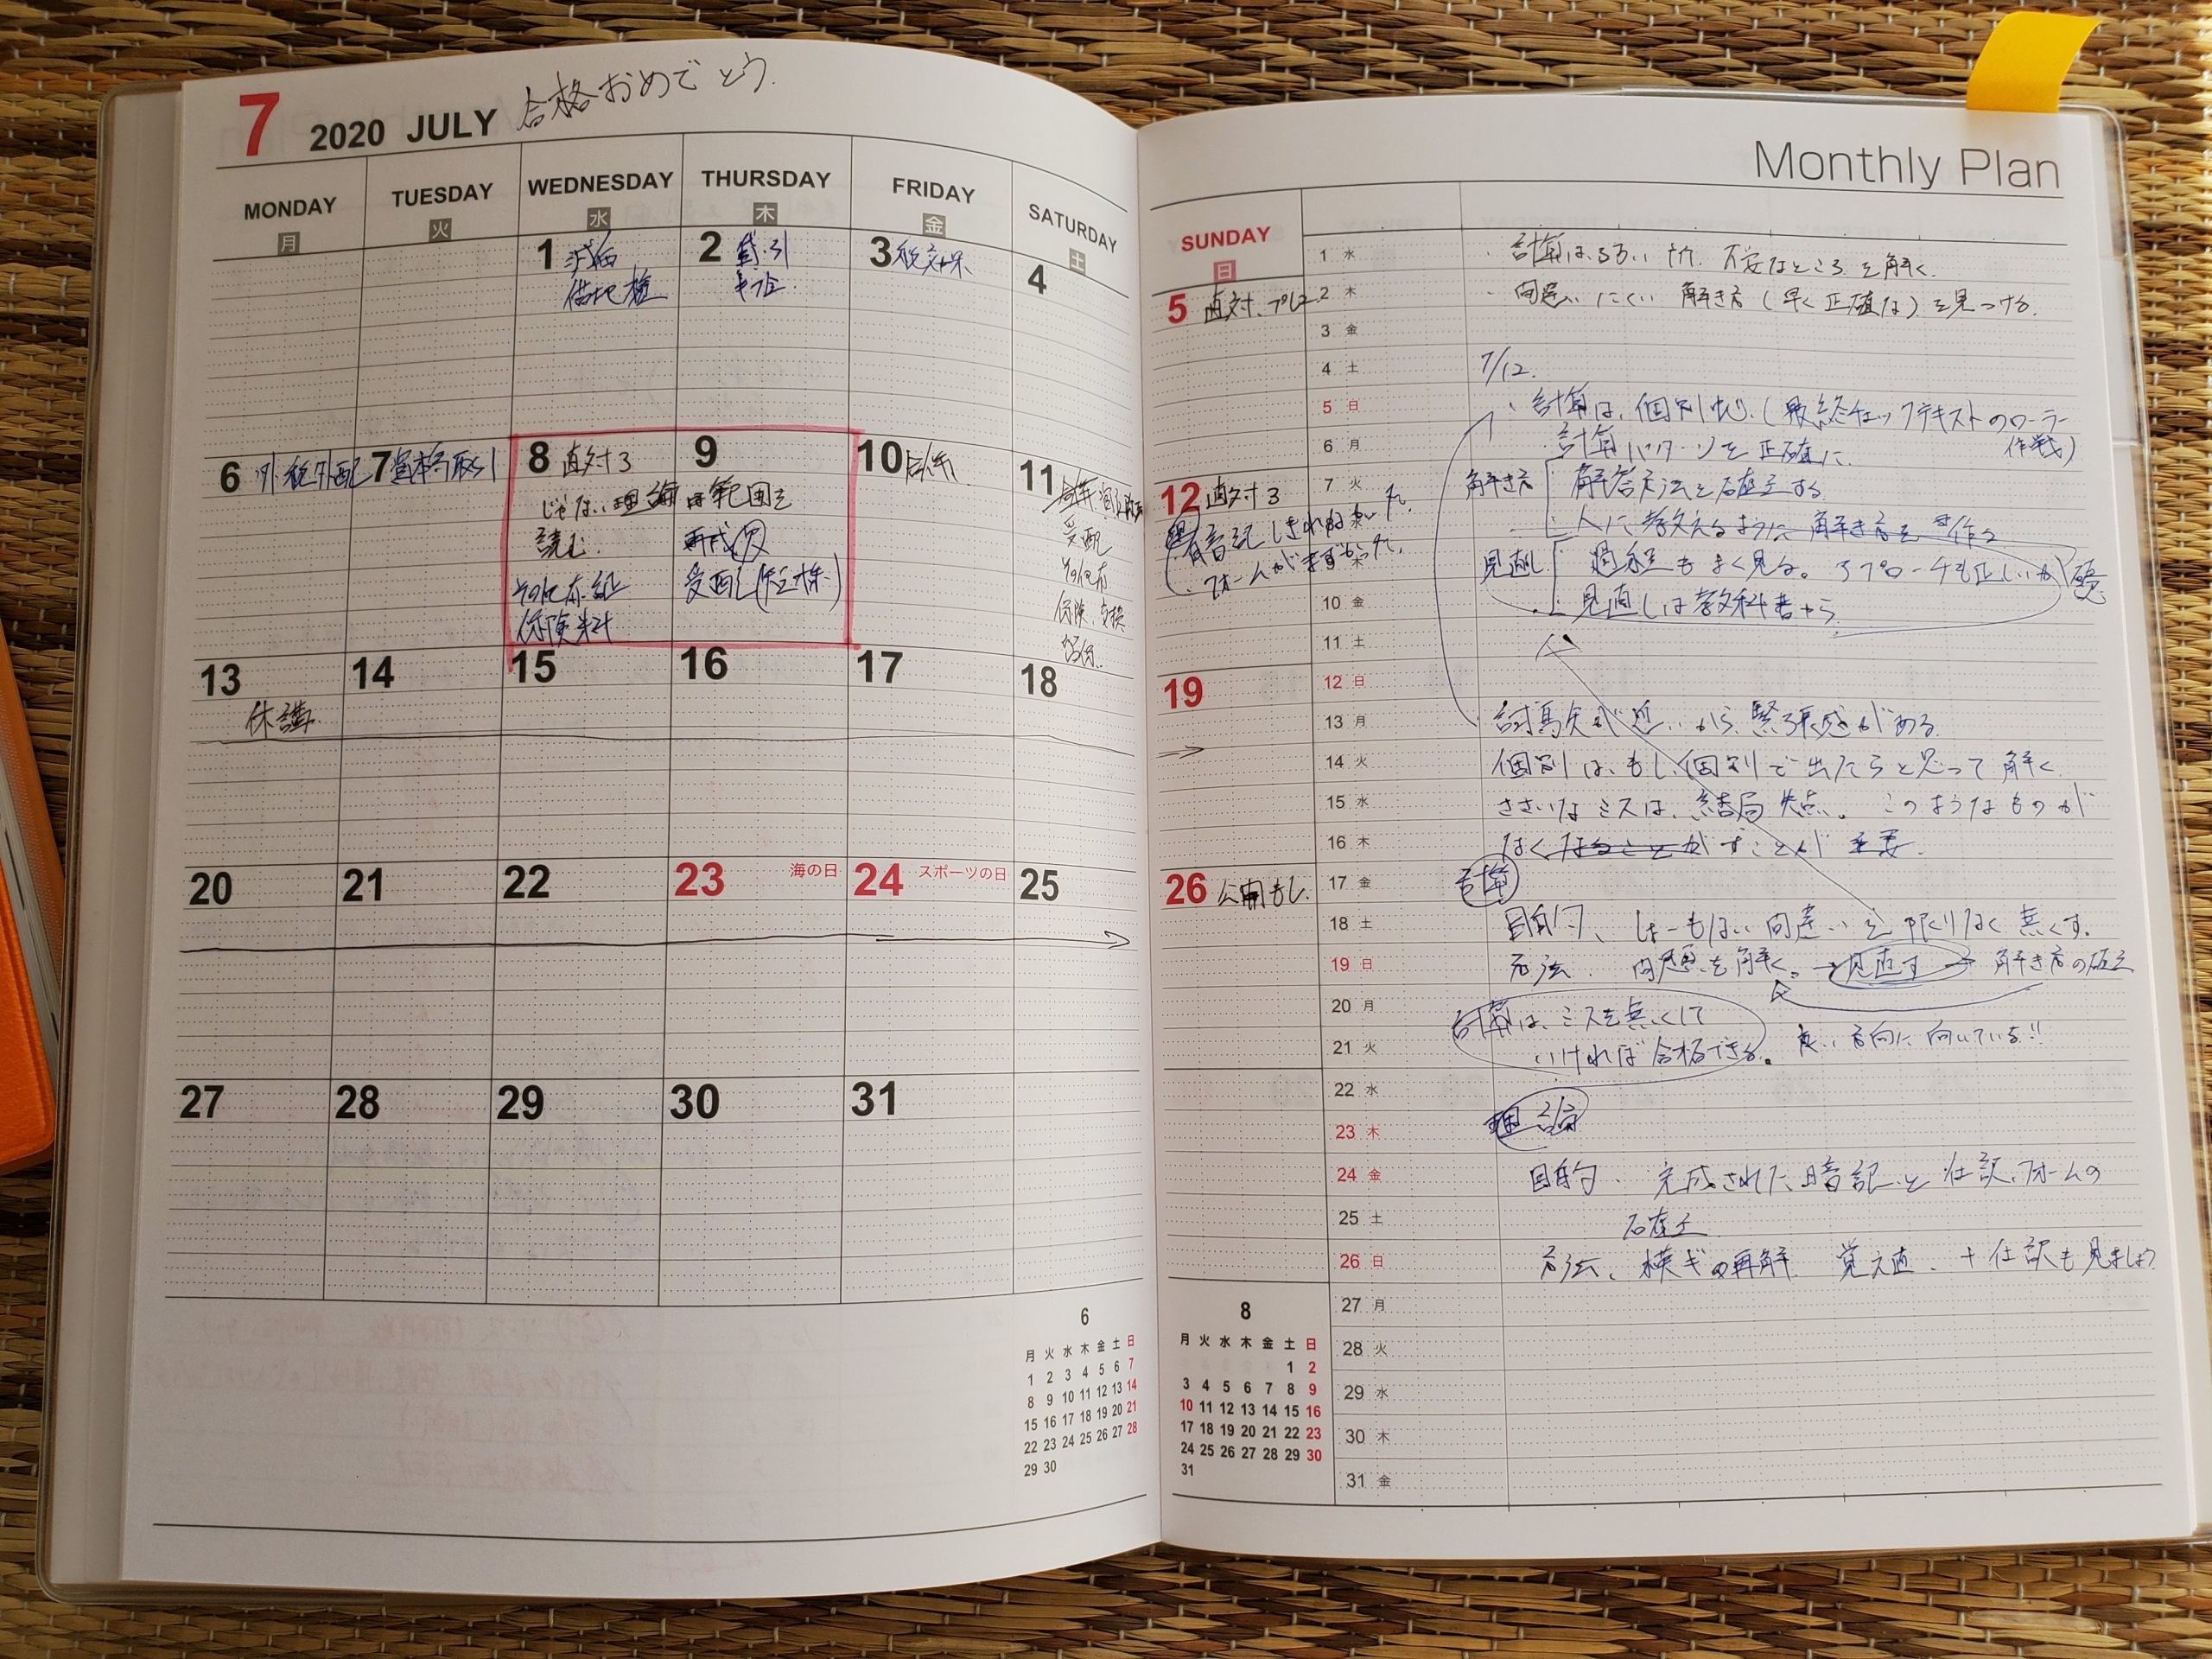 7 2020 JULY 合格おめでとう.
MONDAY TUESDAY WEDNESDAY THURSDAY FRIDAY SATURDAY
月 火 水 木 金 土
1 減価
借地権
2 貸引
3
4
6
7
8 直対3
9
じゃない理論は範囲を
読む.
保険料
10
11
受配
その他有
保険、交換
13 休講.
14
15
16
17
18
20
21
22
23 海の日
24 スポーツの日
25
27
28
29
30
31
6
月 火 水 木 金 土 日
1 2 3 4 5 6 7
8 9 10 11 12 13 14
15 16 17 18 19 20 21
22 23 24 25 26 27 28
29 30
Monthly Plan
SUNDAY
日
5 直対、プレ2
12 直対3
暗記しきれなかった.
フォームがまずかった.
19
26 公開もし.
8
月 火 水 木 金 土 日
1 2
3 4 5 6 7 8 9
10 11 12 13 14 15 16
17 18 19 20 21 22 23
24 25 26 27 28 29 30
31
1 水
2 木
3 金
4 土
5 日
6 月
7 火
10 金
11 土
12 日
13 月
14 火
15 水
16 木
17 金
18 土
19 日
20 月
21 火
22 水
23 木
24 金
25 土
26 日
27 月
28 火
29 水
30 木
31 金
・計算はふるい 不安なところを解く.
・間違いにくい 解き方(早く正確な)を見つける.
7/12.
・計算は、個別 (最終チェックテキストのローラー
作戦)
計算パターンを正確に.
解き方 解答方法を確立する
人に教えるように 解き方を 作る
見直し 過程もよく見る。アプローチも正しいか
見直しは教科書から
緊張感がある.
個別は、もし個別で出たらと思って解く.
ささいなミスは、結局失点。このようなものが
なくなることがすことが重要.
計算
目的、しょーもない間違いを限りなく無くす.
方法. 問題を解く。→見直す→ 解き方の確立
計算は、ミスを無くして
いければ合格できる。 良い方向に向いている!!
理論
目的. 完成された暗記と仕訳、フォームの
確立
方法、横ギの再解 覚え直. +仕訳も見ましょう